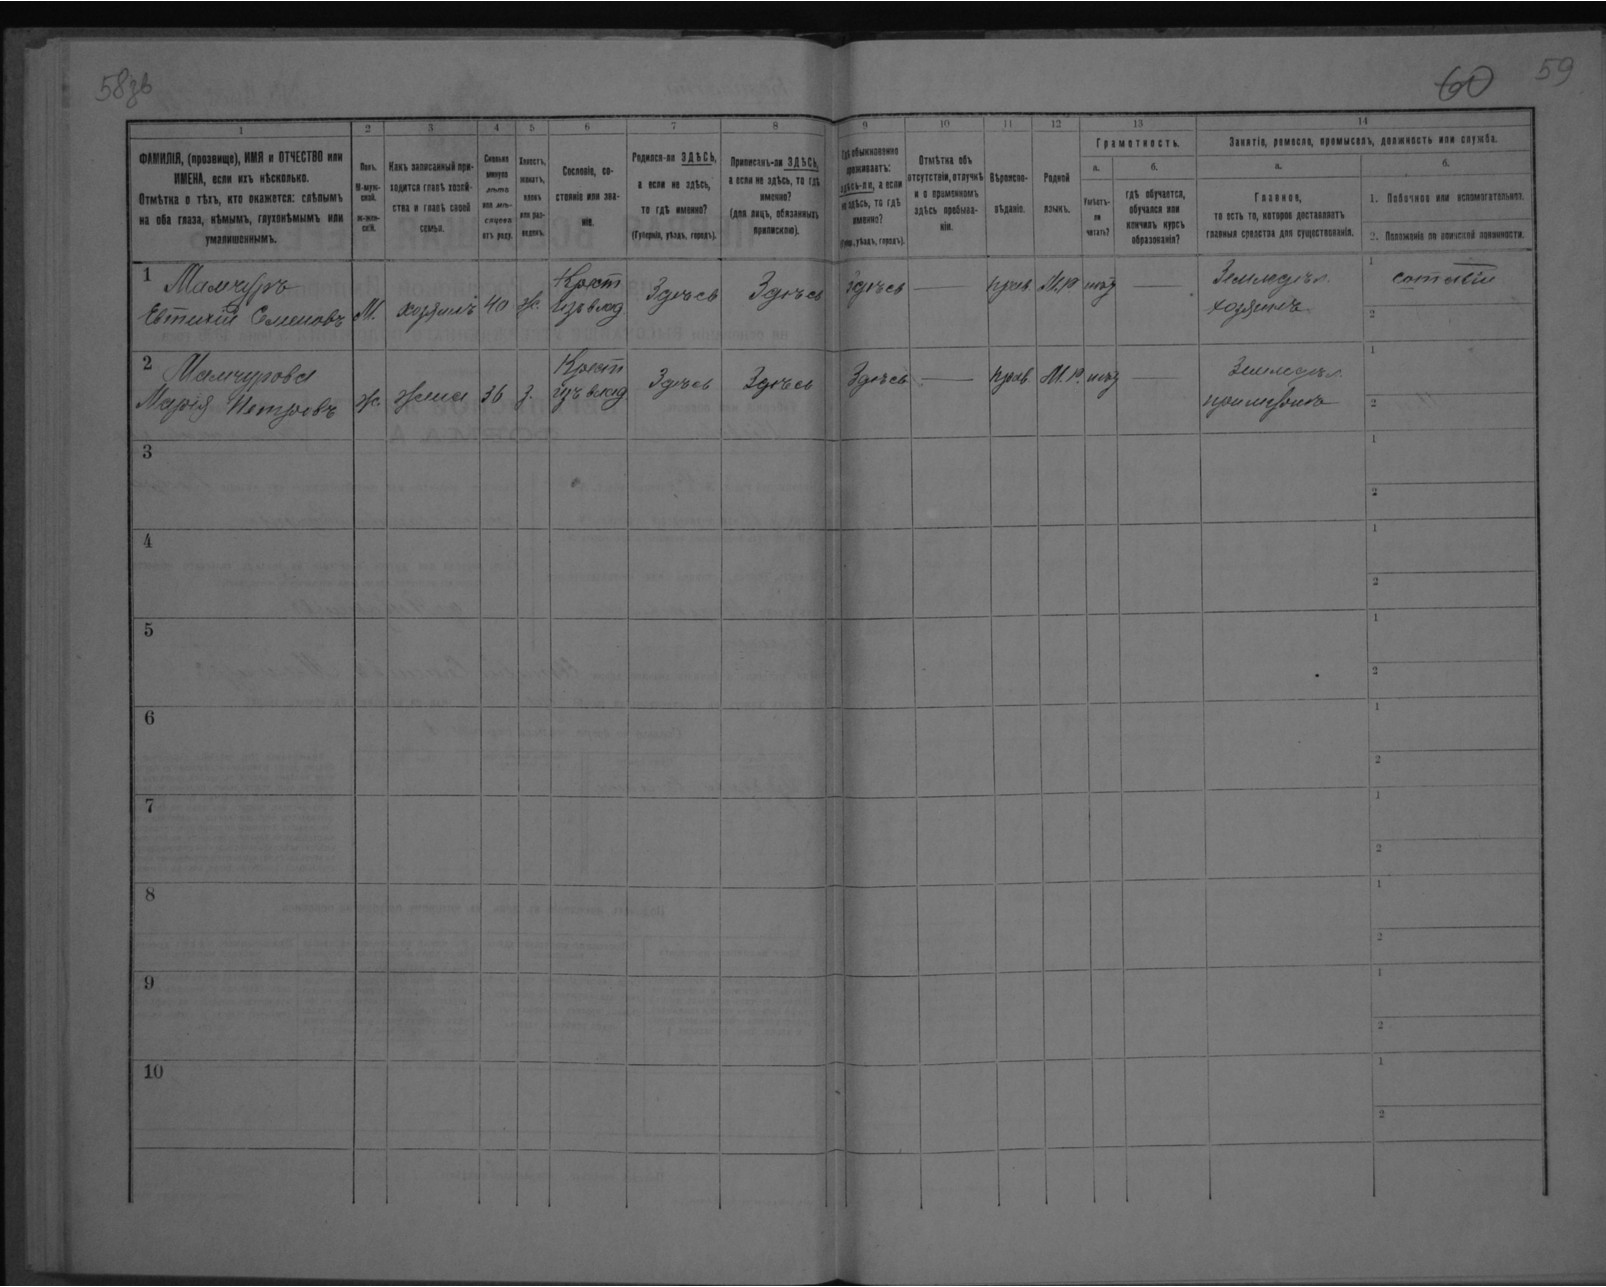 58зв
60
59
1
2
3
4
5
6
7
8
9
10
11
12
13
14
ФАМИЛІЯ, (прозвище), ИМЯ и ОТЧЕСТВО или
ИМЕНА, если ихъ нѣсколько.
Отмѣтка о тѣхъ, кто окажется: слѣпымъ
на оба глаза, нѣмымъ, глухонѣмымъ или
умалишеннымъ.
Полъ.
М-муж-
ской.
Ж-жен-
скій.
Какъ записанный при-
ходится главѣ хозяй-
ства и главѣ своей
семьи.
Сколько
минуло
лѣтъ
или мѣ-
сяцевъ
отъ роду.
Холостъ,
женатъ,
вдовъ
или раз-
веденъ.
Сословіе, со-
стояніе или зва-
ніе.
Родился-ли ЗДѢСЬ,
а если не здѣсь,
то гдѣ именно?
(Губернія, уѣздъ, городъ).
Приписанъ-ли ЗДѢСЬ,
а если не здѣсь, то гдѣ
именно?
(для лицъ, обязанныхъ
припискою).
Гдѣ обыкновенно
проживаетъ:
здѣсь-ли, а если
не здѣсь, то гдѣ
именно?
(Губ., уѣздъ, городъ).
Отмѣтка объ
отсутствіи, отлучкѣ
и о временномъ
здѣсь пребыва-
ніи.
Вѣроиспо-
вѣданіе.
Родной
языкъ.
Грамотность.
а.
б.
Умѣетъ-
ли
читать?
гдѣ обучается,
обучался или
кончилъ курсъ
образованія?
Занятіе, ремесло, промыселъ, должность или служба.
а.
б.
Главное,
то есть то, которое доставляетъ
главныя средства для существованія.
1. Побочное или вспомогательное.
2. Положеніе по воинской повинности.
1 Мамчуръ
Евтихій Семеновъ М. хозяинъ 40 ж. Крест Здѣсь Здѣсь Здѣсь — прав М.р — Земледѣл. хозяинъ
1
2
2 Мамчурова
Марія Петровъ ж. жена 36 з. Крест Здѣсь Здѣсь Здѣсь — прав М.р. — Земледѣл.
1
2
3
1
2
4
1
2
5
1
2
6
1
2
7
1
2
8
1
2
9
1
2
10
1
2